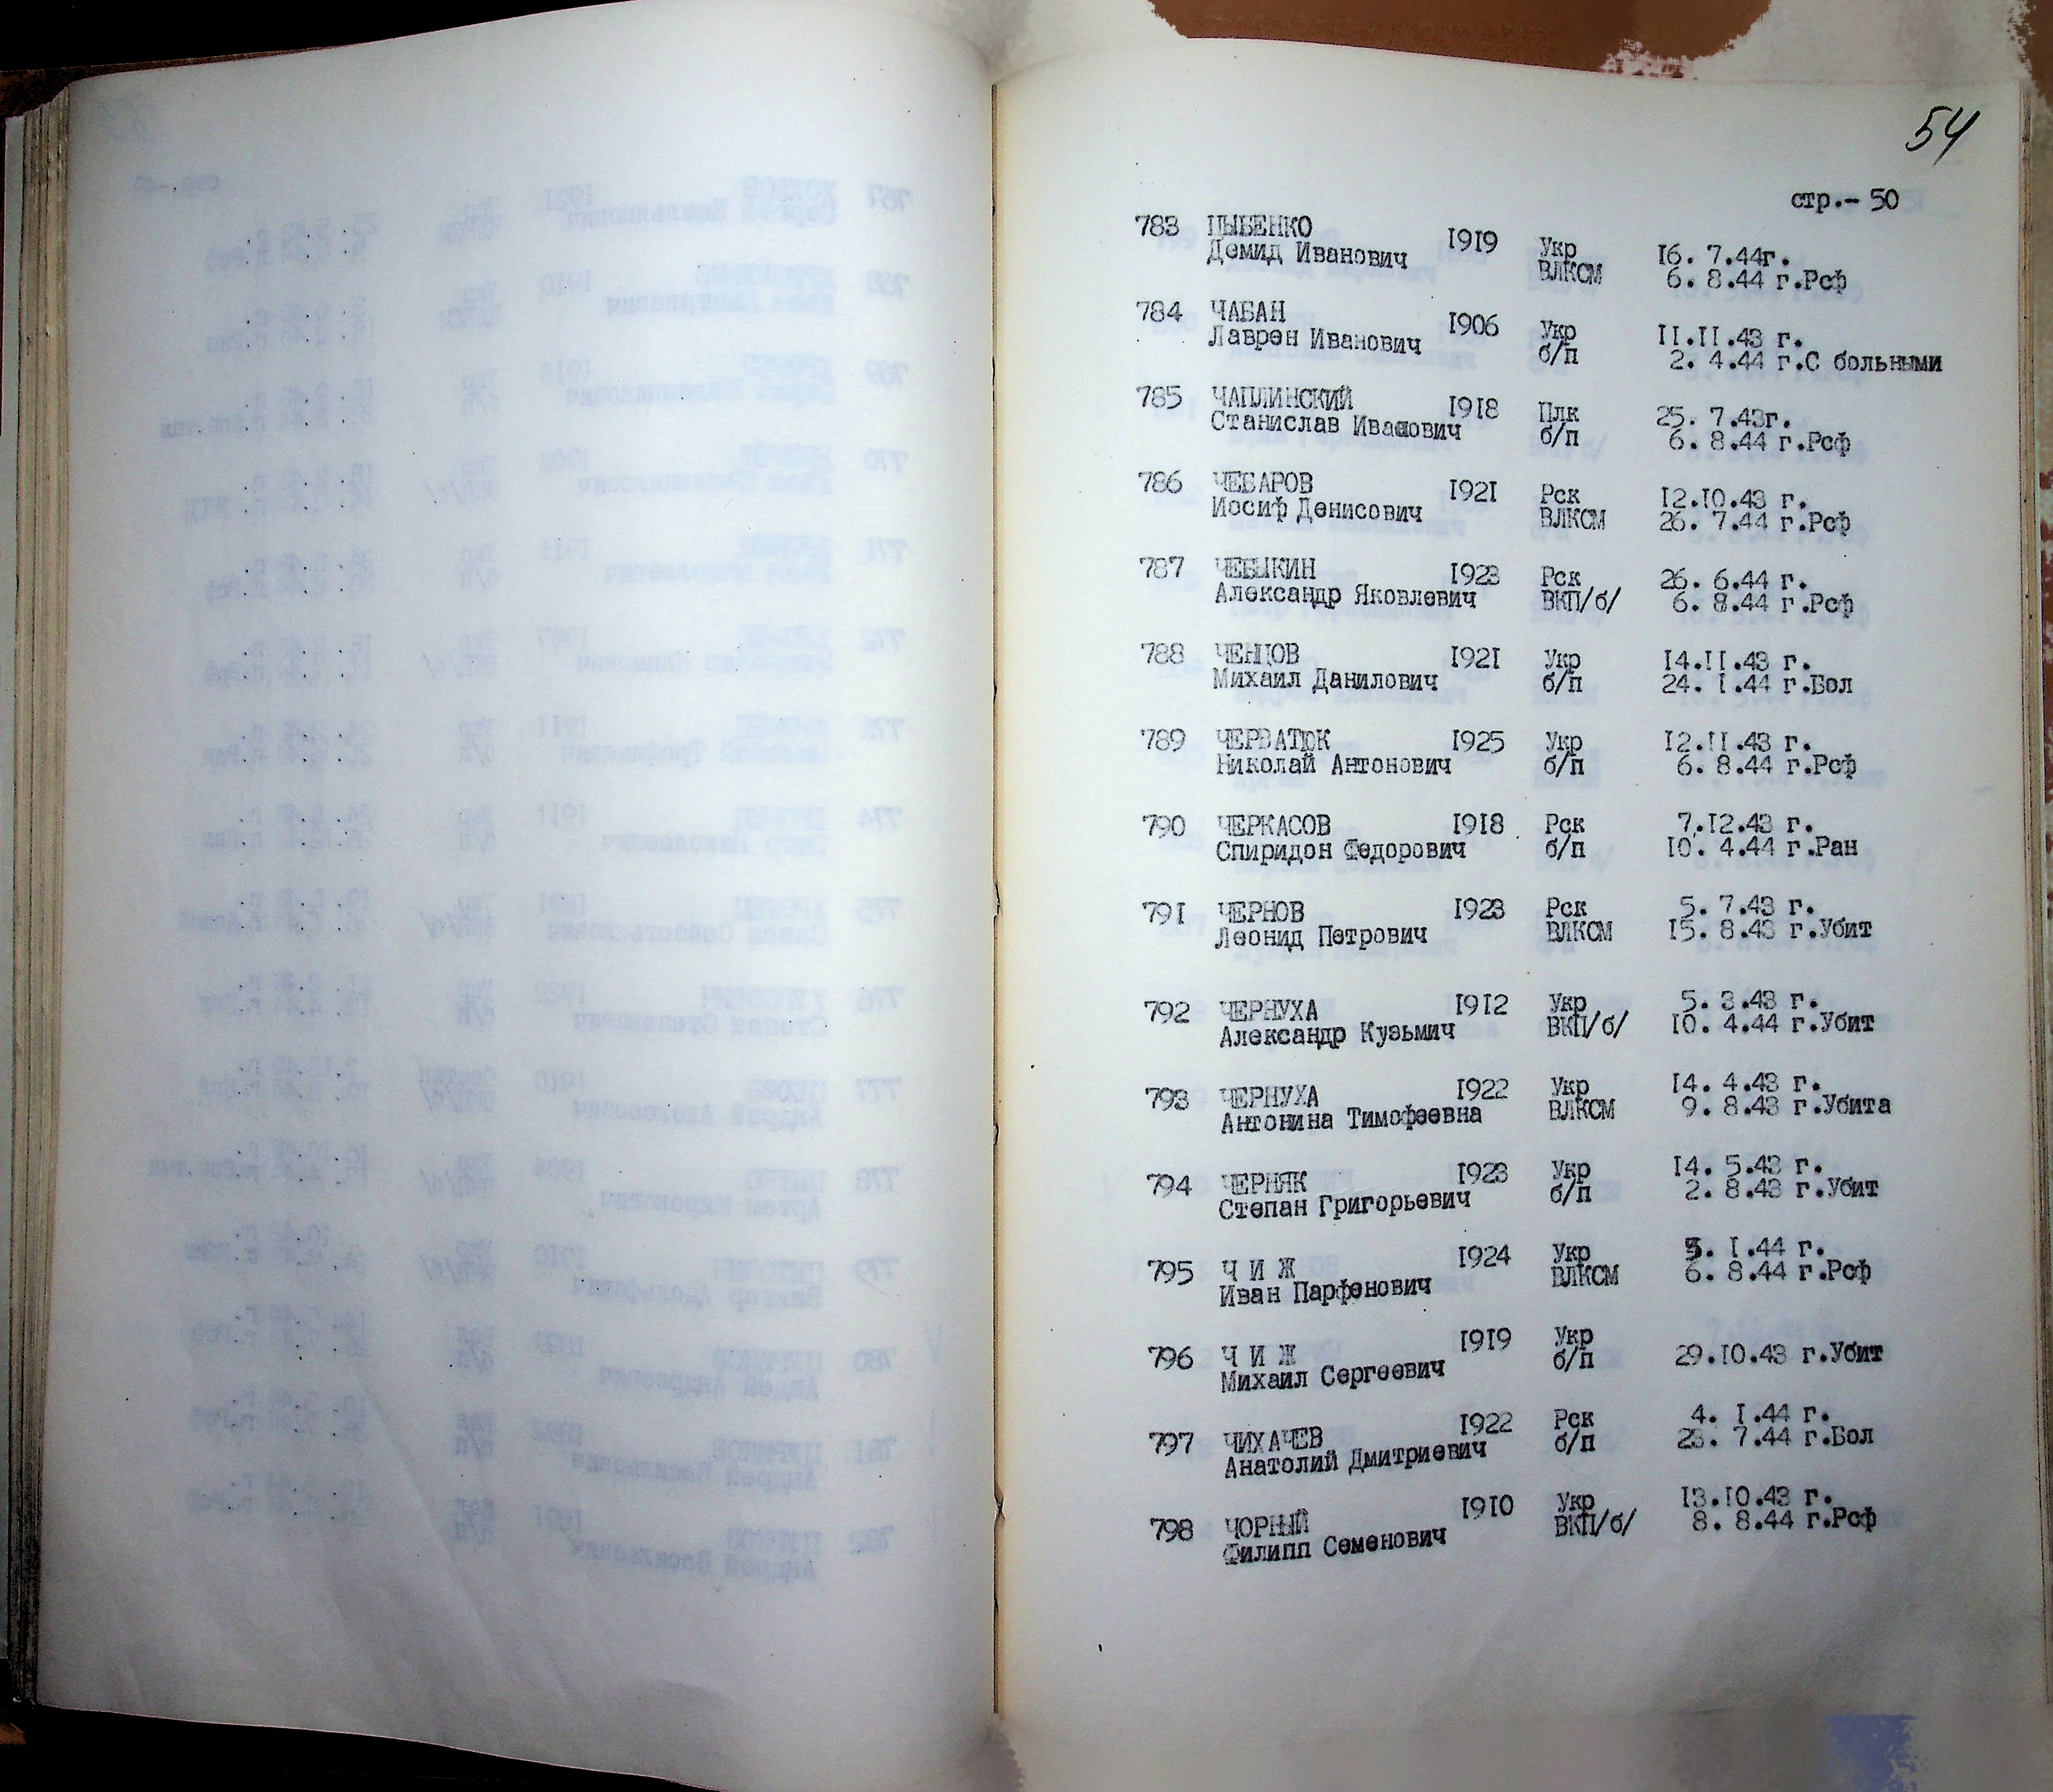 54
стр.- 50
783 ЦЫБЕНКО 1919 Укр 16. 7.44г.
Демид Иванович ВЛКСМ 6. 8.44 г.Рсф
784 ЧАБАН 1906 Укр 11.11.43 г.
Лаврен Иванович б/п 2. 4.44 г.С больными
785 ЧАПЛИНСКИЙ 1918 Плк 25. 7.43г.
Станислав Иванович б/п 6. 8.44 г.Рсф
786 ЧЕБАРОВ 1921 Рск 12.10.43 г.
Иосиф Денисович ВЛКСМ 26. 7.44 г.Рсф
787 ЧЕБЫКИН 1923 Рск 26. 6.44 г.
Александр Яковлевич ВКП/б/ 6. 8.44 г.Рсф
788 ЧЕНЦОВ 1921 Укр 14.11.43 г.
Михаил Данилович б/п 24. 1.44 г.Бол
789 ЧЕРВАТЮК 1925 Укр 12.11.43 г.
Николай Антонович б/п 6. 8.44 г.Рсф
790 ЧЕРКАСОВ 1918 Рск 7.12.43 г.
Спиридон Федорович б/п 10. 4.44 г.Ран
791 ЧЕРНОВ 1923 Рск 5. 7.43 г.
Леонид Петрович ВЛКСМ 15. 8.43 г.Убит
792 ЧЕРНУХА 1912 Укр 5. 3.43 г.
Александр Кузьмич ВКП/б/ 10. 4.44 г.Убит
793 ЧЕРНУХА 1922 Укр 14. 4.43 г.
Антонина Тимофеевна ВЛКСМ 9. 8.43 г.Убита
794 ЧЕРНЯК 1923 Укр 14. 5.43 г.
Степан Григорьевич б/п 2. 8.43 г.Убит
795 Ч И Ж 1924 Укр 3. 1.44 г.
Иван Парфенович ВЛКСМ 6. 8.44 г.Рсф
796 Ч И Ж 1919 Укр
Михаил Сергеевич б/п 29.10.43 г.Убит
797 ЧИХАЧЕВ 1922 Рск 4. 1.44 г.
Анатолий Дмитриевич б/п 23. 7.44 г.Бол
798 ЧОРНЫЙ 1910 Укр 13.10.43 г.
Филипп Семенович ВКП/б/ 8. 8.44 г.Рсф